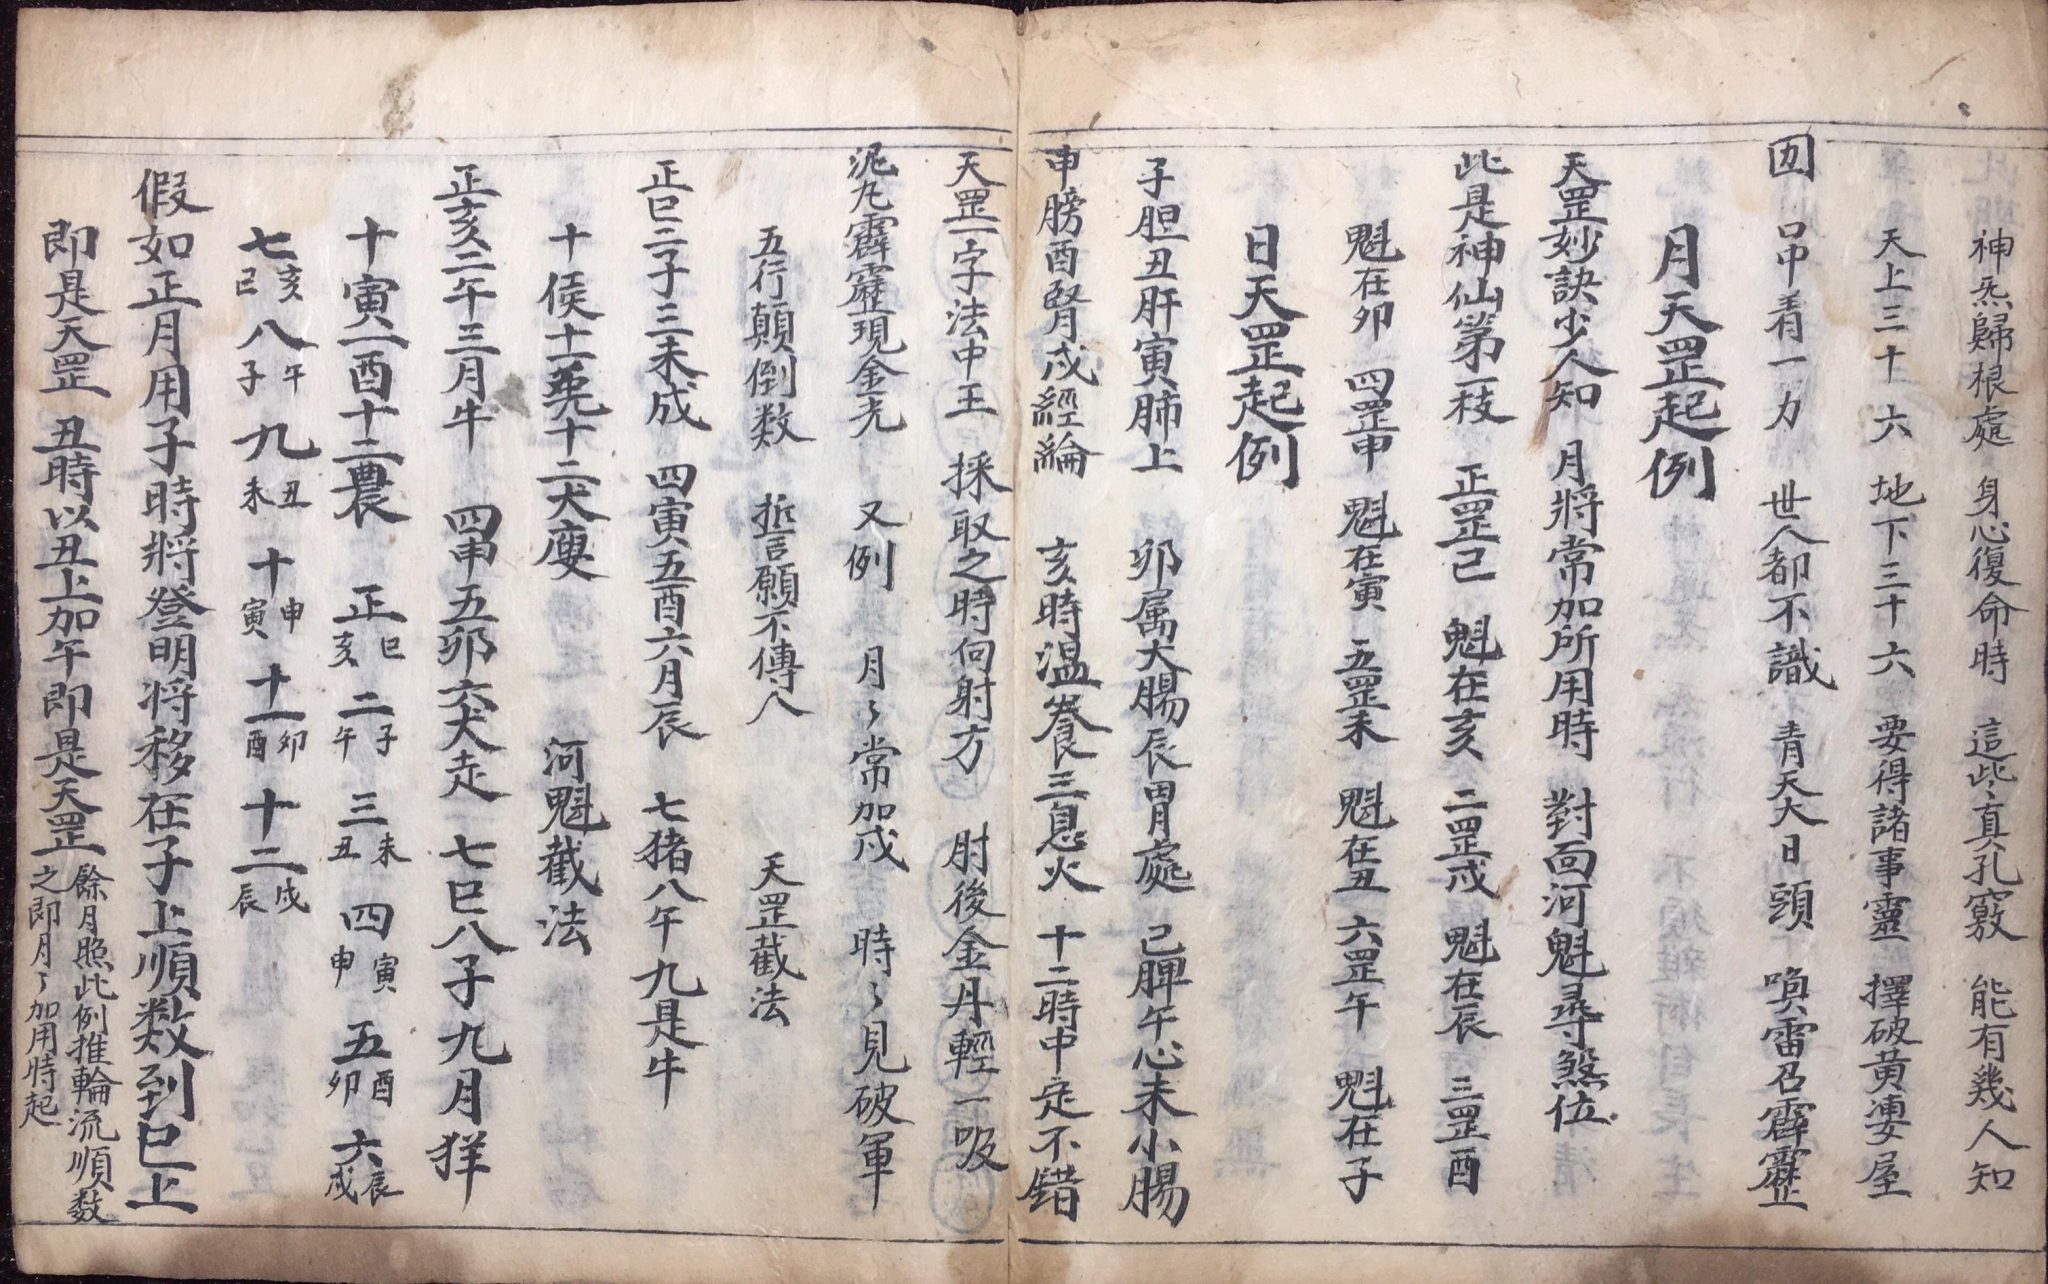 神炁歸根處 身心復命時 這些真孔竅 能有幾人知
天上三十六 地下三十六 要得諸事靈 擇破黃婁屋
囙 口中着一力 世人都不識 青天大日頭 喚雷召霹靂
月天罡起例
天罡妙訣少人知 月將常加所用時 對面河魁尋煞位
此是神仙第一枝 正罡巳 魁在亥 二罡戌 魁在辰 三罡酉
魁在卯 四罡申 魁在寅 五罡未 魁在丑 六罡午 魁在子
日天罡起例
子胆丑肝寅肺上 卯属大腸辰胃處 己脾午心未小腸
申膀酉腎戌經綸 亥時温養三息火 十二時中定不錯
天罡一字法中王 採取之時向射方 肘後金丹輕一吸
泥丸霹靂現金光 又例 月々常加戌 時々見破軍
五行顛倒数 誓願不傳人 天罡截法
正巳二子三未成 四寅五酉六月辰 七猪八午九是牛
十侯十一兎十二犬廋 河魁截法
正亥二午三月牛 四申五卯六犬走 七巳八子九月羊
十寅十一酉十二農 正巳亥 二子午 三未丑 四寅申 五酉卯 六辰戌
七亥己 八午子 九丑未 十申寅 十一卯酉 十二戌辰
假如正月用子時將登明将移在子上順数到巳上
即是天罡 丑時以丑上加午即是天罡 餘月照此例推輪流順数
之即月々加用時起